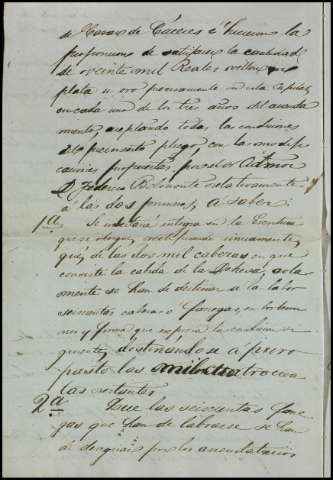 de Navas de Cáceres é hicieron la
proposicion de satisfacer la cantidad
de veinte mil Reales vellon en
plata u oro precisamente en esta Capital
en cada uno de los tres años del arrenda
miento, aceptando todas las condiciones
del presente pliego con las modifi
caciones propuestas por el Sor Admor
D. Federico Belmonte relativamente
á las dos primeras, á saber:
1ª. Se insertará integra en la Escritura
que se otorgue, rectificando unicamente,
que, de las dos mil cabezas en que
consiste la cabida de la Dehesa, sola
mente se han de destinar á la labor
seiscientas cabezas ó fanegas, en los termi
nos y forma que espresa la condicion si
guiente, destinándose á puro
pasto las mil cuatrocien
tas restantes
2ª. Que las seiscientas fane
gas que han de labrarse se han
de designar por los arrendatarios